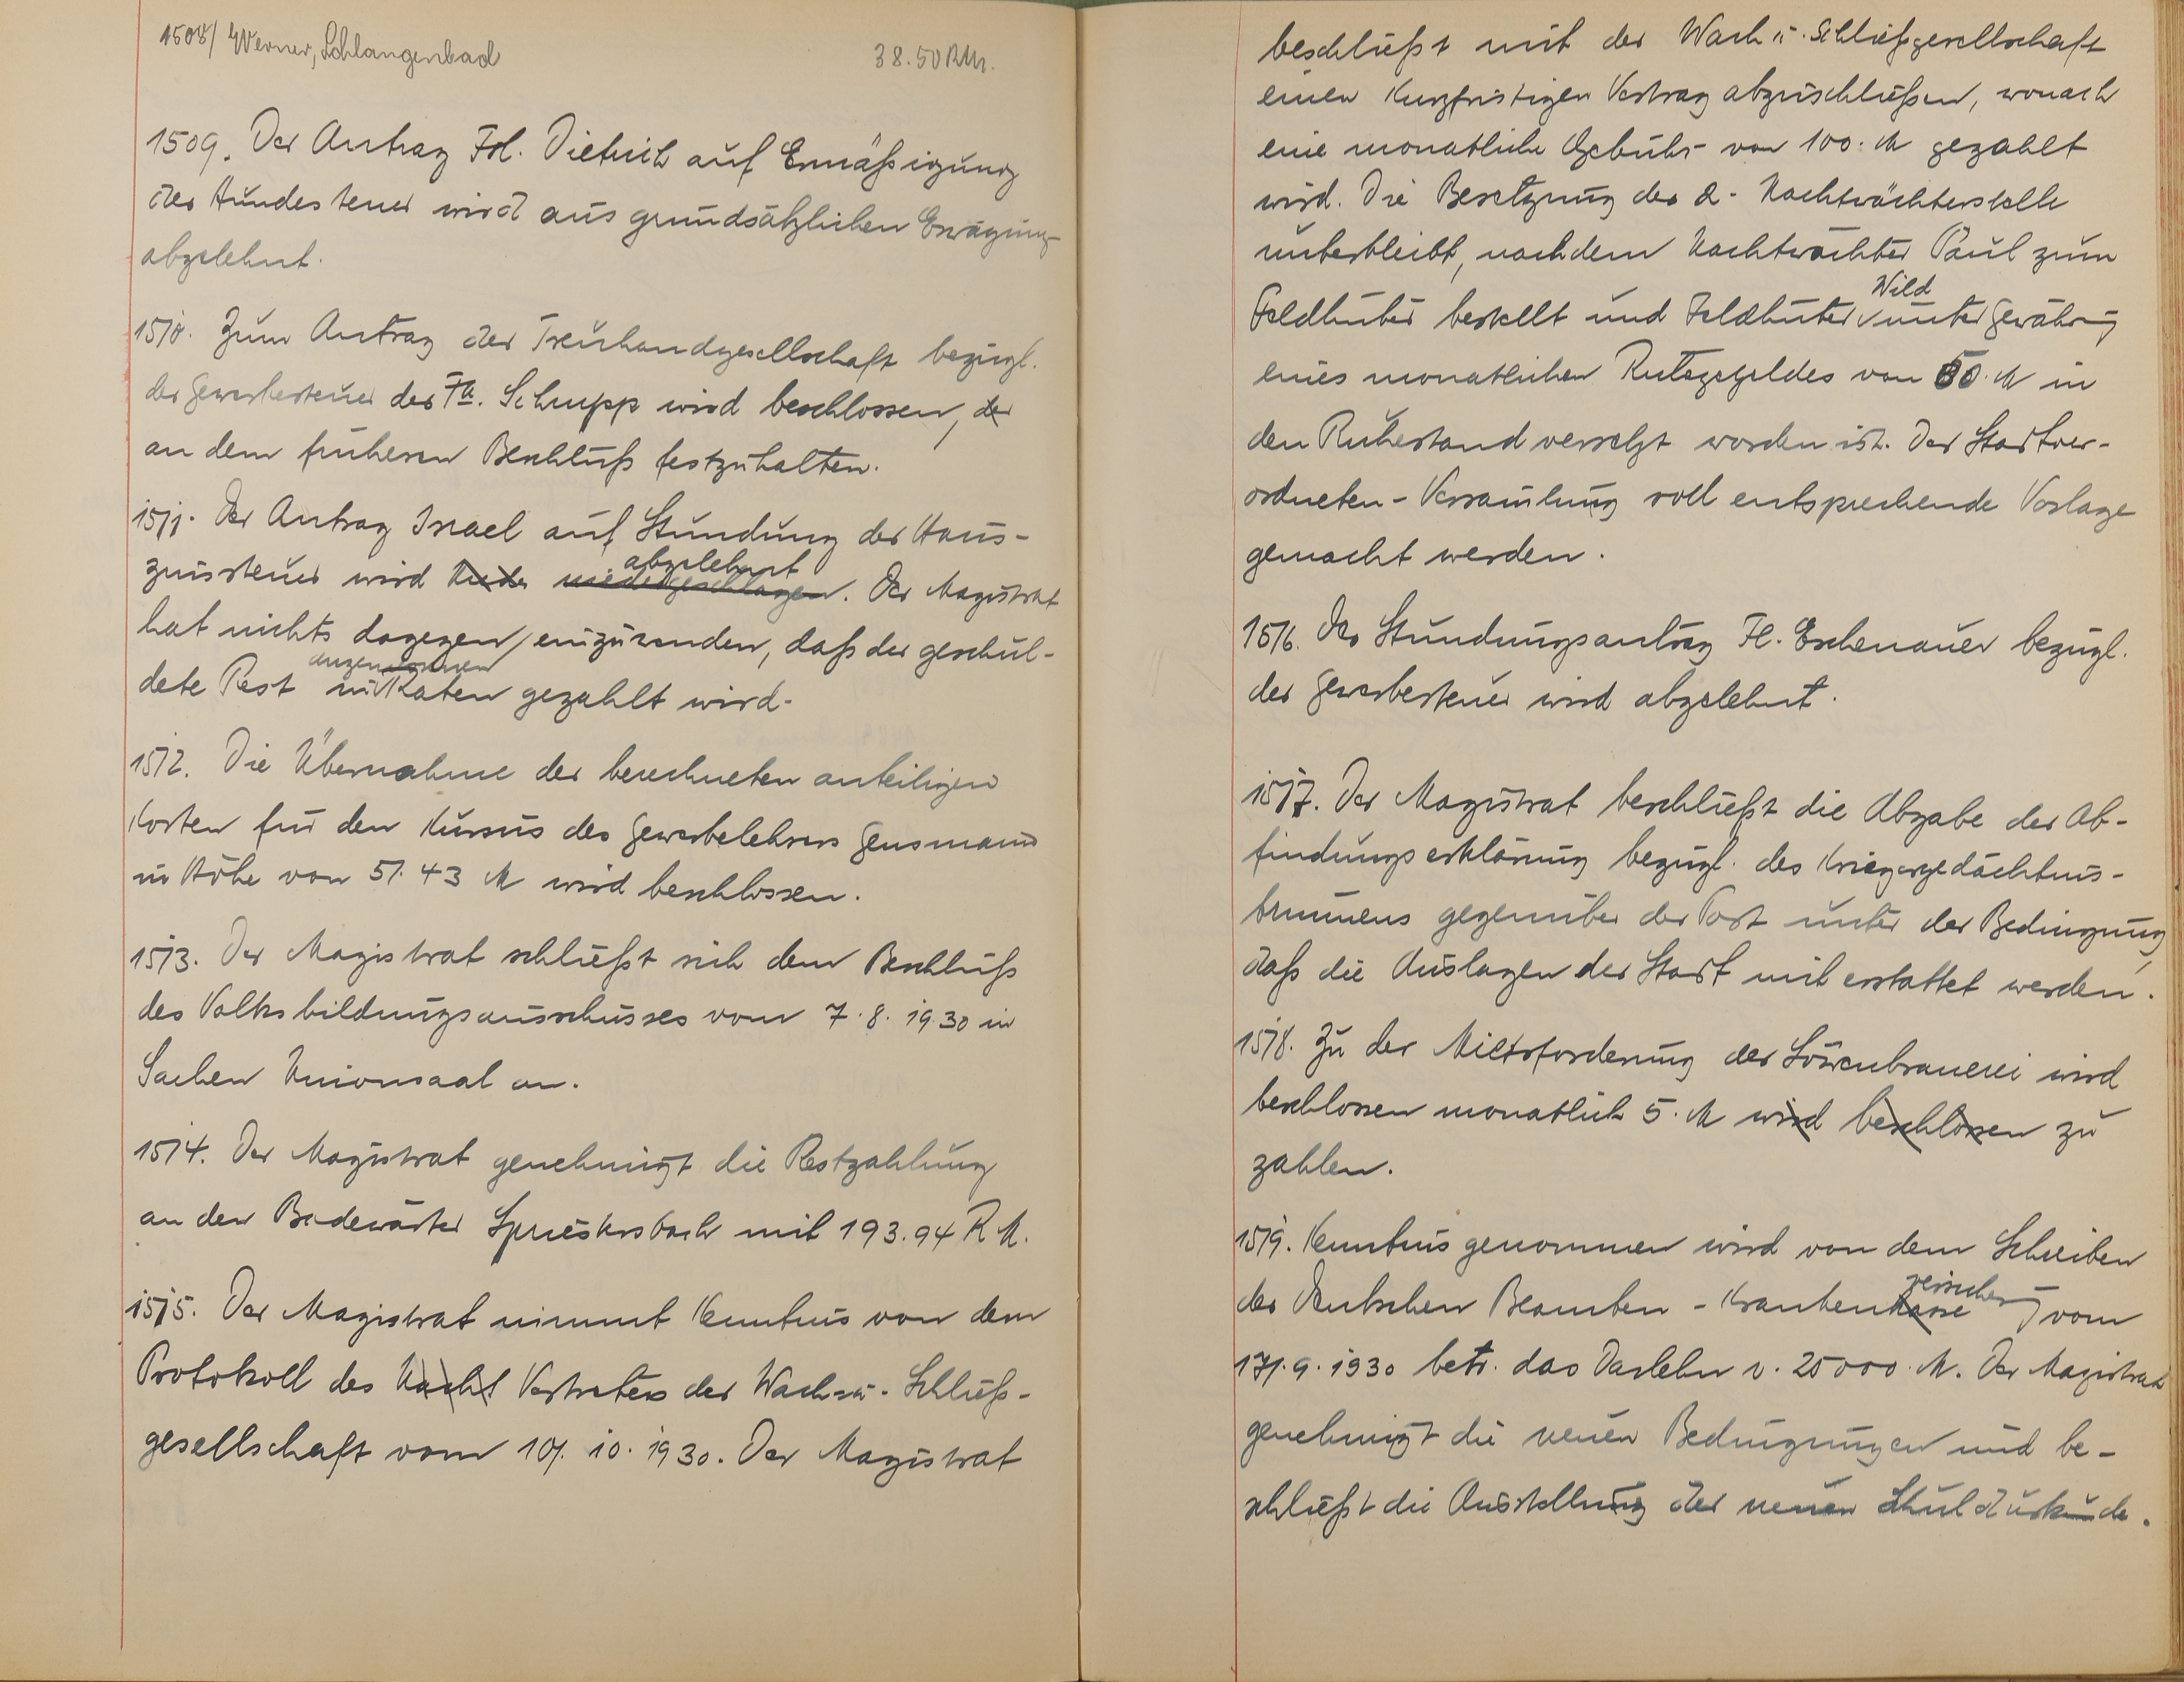 1508/ Werner, Schlangenbad 38.50 RM.
1509. Der Antrag Frl. Dietrich auf Ermäßigung
der Hundesteuer wird aus grundsätzlichen Erwägung
abgelehnt.
1510. Zum Antrag der Treuhandgesellschaft bezügl.
der Gewerbesteuer der Fa. Schrupp wird beschlossen, der
an dem früheren Beschluß festzuhalten.
1511. Der Antrag Israel auf Stundung der Haus-
abgelehnt
zinssteuer wird niedergeschlagen. Der Magistrat
hat nichts dagegen einzuwenden, daß der geschul-
angenommen
dete Rest in Raten gezahlt wird.
1512. Die Übernahme der berechneten anteiligen
Kosten für den Kursus des Gewerbelehrers Gensmann
in Höhe von 51.43 M wird beschlossen.
1513. Der Magistrat schließt sich dem Beschluß
des Volksbildungsausschusses vom 7.8.1930 in
Sachen Unionsaal an.
1514. Der Magistrat genehmigt die Restzahlung
an den Badewärter Spriestersbach mit 193.94 RM.
1515. Der Magistrat nimmt Kenntnis von dem
Protokoll des Wacht Vertreters der Wach u. Schließ-
gesellschaft vom 10. 10. 1930. Der Magistrat
beschließt mit der Wach u. Schließgesellschaft
einen Kurzfristigen Vertrag abzuschließen, wonach
eine monatliche Gebühr von 100. M gezahlt
wird. Die Besetzung der 2. Nachtwächterstelle
unterbleibt, nachdem Nachtwächter Paul zum
Wild
Feldhüter bestellt und Feldhüter unter Gewährung
eines monatlichen Ruhegeldes von 50. M in
den Ruhestand versetzt worden ist. Der Stadtver-
ordneten-Versamlung soll entsprechende Vorlage
gemacht werden.
1516. Der Stundungsantrag Fl. Eschenauer bezügl.
der Gewerbesteuer wird abgelehnt.
1517. Der Magistrat beschließt die Abgabe der Ab-
findungserklärung bezügl. des Kriegergedächtnis-
brunnens gegenüber der Post unter der Bedingung,
daß die Auslagen der Stadt mit erstattet werden.
1518. Zu der Mietsforderung der Löwenbrauerei wird
beschlossen monatlich 5. M wird beschlossen zu
zahlen.
1519. Kenntnis genommen wird von dem Schreiben
versicherg
der Deutschen Beamten-Krankenkasse vom
17.9.1930 betr. das Darlehn v. 25000. M. Der Magistrat
genehmigt die neuen Bedingungen und be-
schließt die Ausstellung der neuen Schuldurkunde.